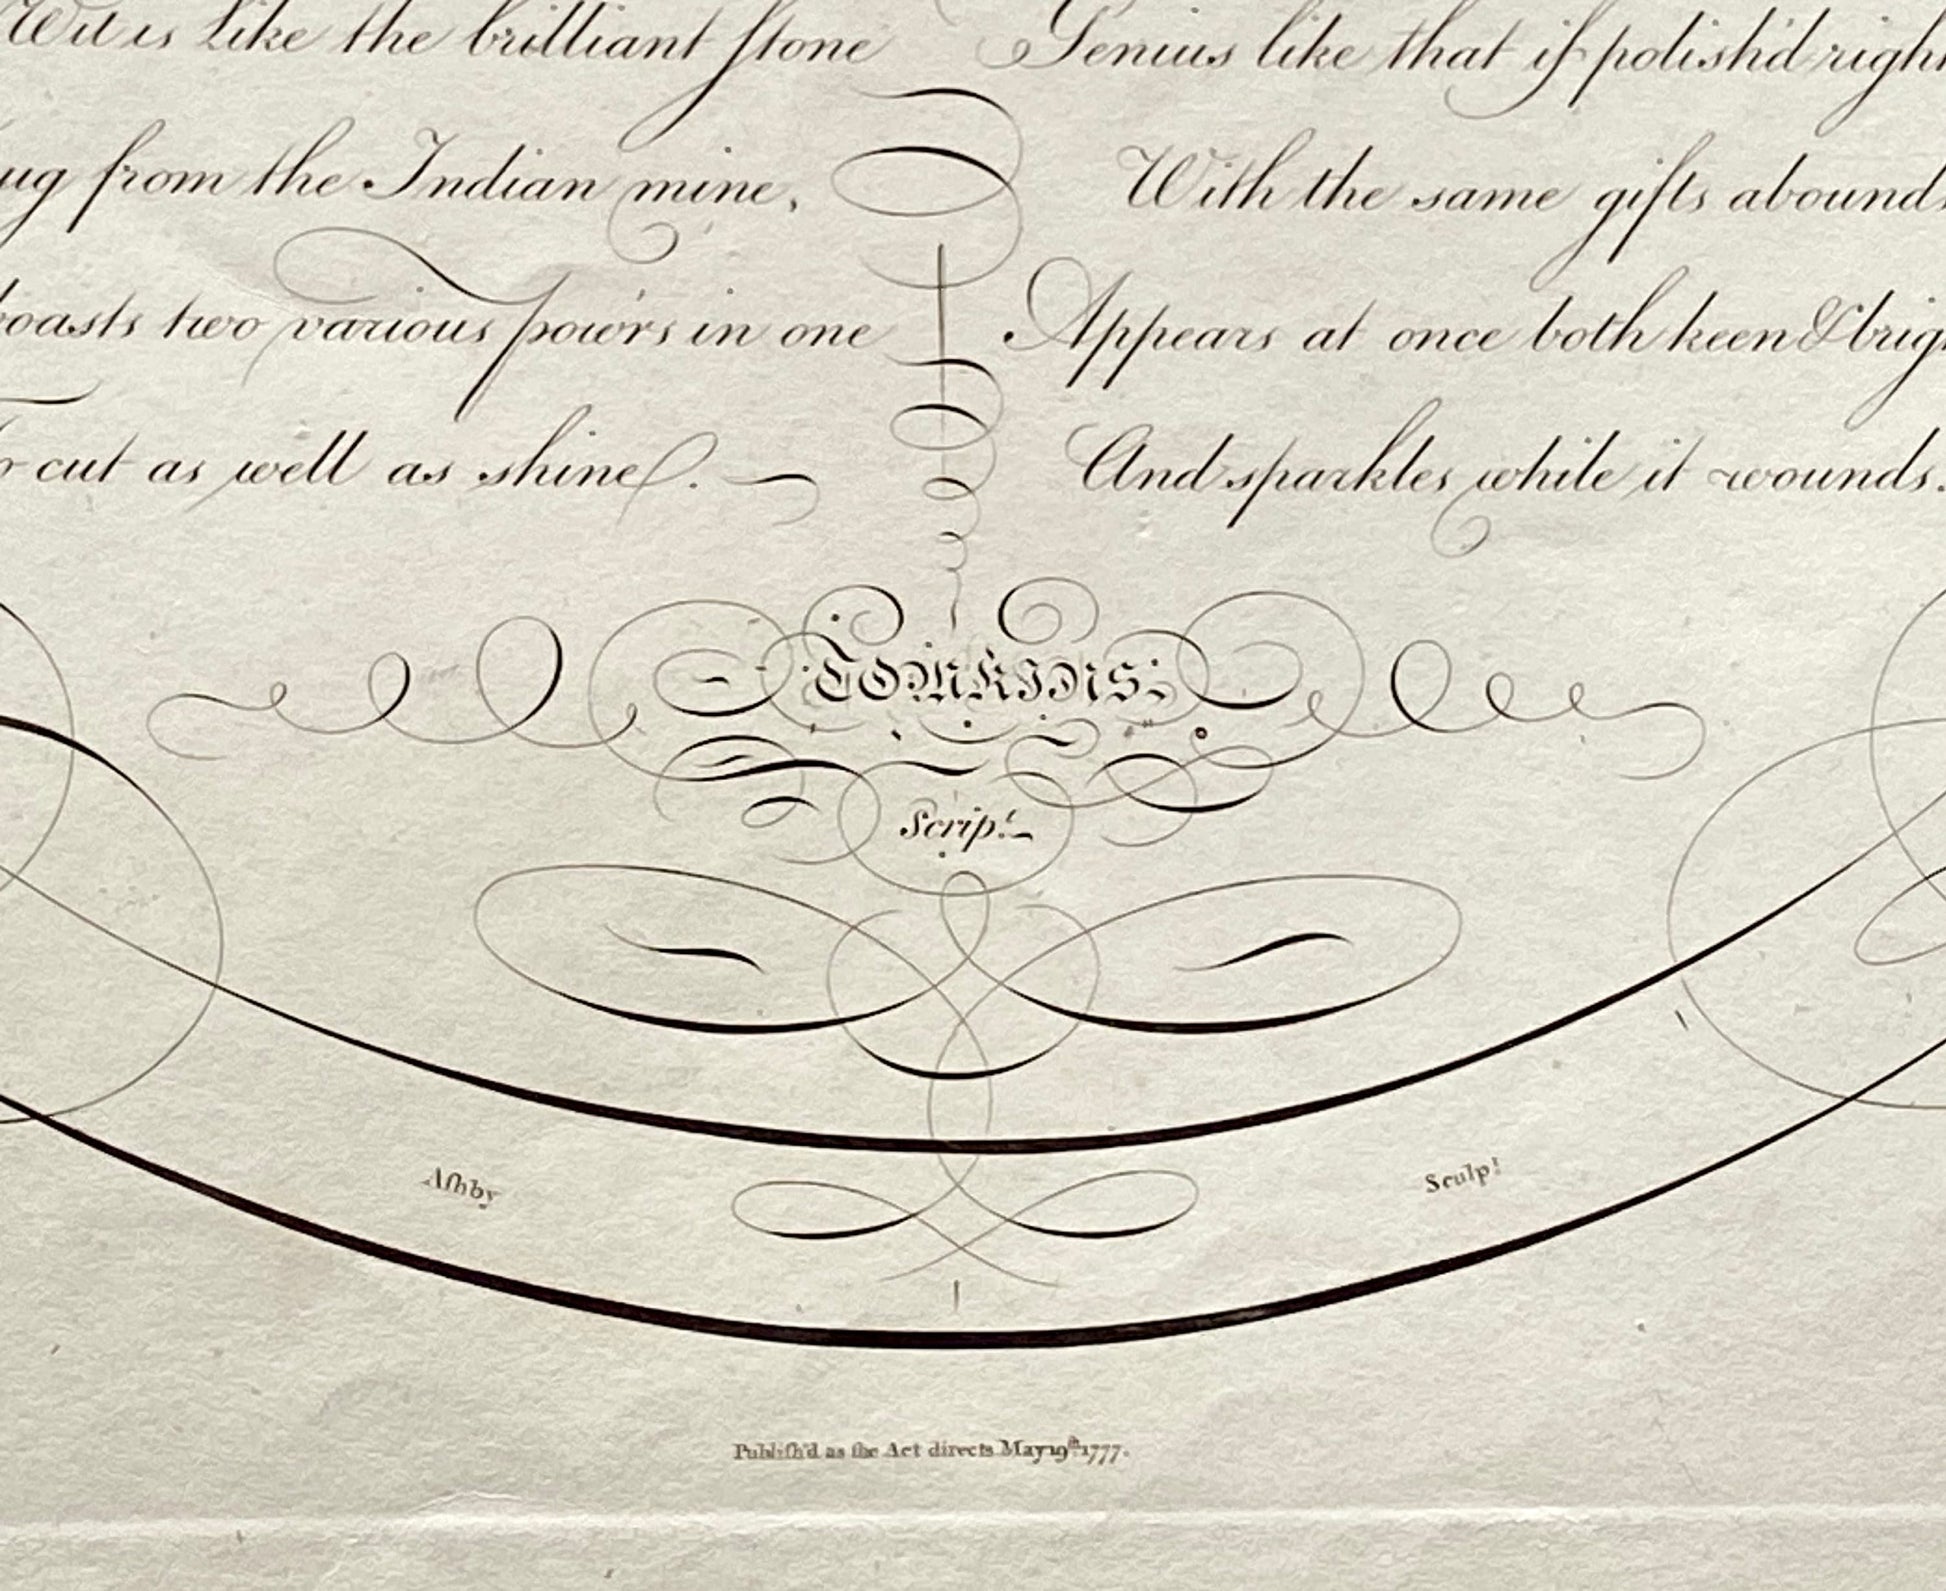 Wit is like the brilliant ſtone
ug from the Indian mine,
boasts two various pow'rs in one
To cut as well as shine.
Genius like that if polish'd right
With the same gifts abounds
Appears at once both keen & brig
And sparkles while it wounds.
TOMKINS.
Scrip.t
Aſhby
Sculp.t
Publiſh'd as the Act directs May 19th 1777.